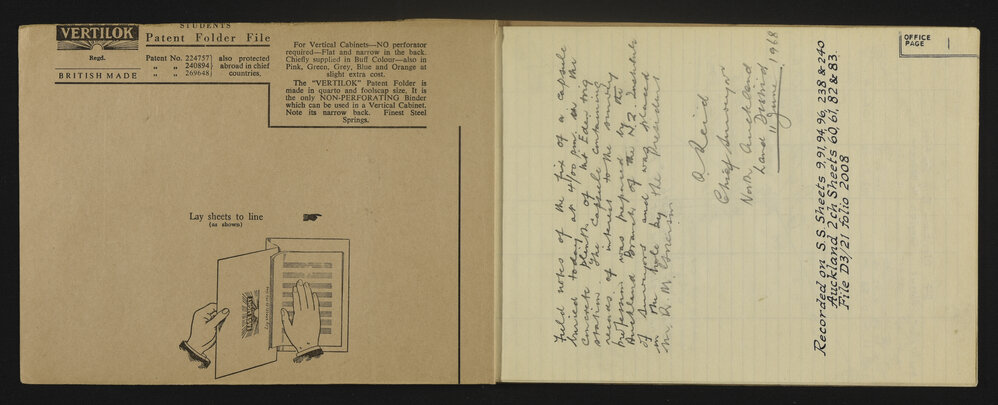 VERTILOK
Regd.
BRITISH MADE
STUDENTS
Patent Folder File
Patent No. 224757
" " 240894
" " 269648
also protected
abroad in chief
countries.
For Vertical Cabinets—NO perforator
required—Flat and narrow in the back.
Chiefly supplied in Buff Colour—also in
Pink, Green, Grey, Blue and Orange at
slight extra cost.
The "VERTILOK" Patent Folder is
made in quarto and foolscap size. It is
the only NON-PERFORATING Binder
which can be used in a Vertical Cabinet.
Note its narrow back. Finest Steel
Springs.
Lay sheets to line
(as shown)
OFFICE
PAGE
1
Field notes of the fix of a capsule
buried today at 4/00 p.m. in the
concrete plinth of Mt Eden trig
station. The capsule containing
records of interest to the survey
profession was prepared by the
Auckland Branch of the N.Z. Institute
of Surveyors and was placed
in the hole by the president
Mr. R. M.
Reid
Chief Surveyor
North Auckland
Land District
11 June, 1968
Recorded on S.S Sheets 9, 91, 94, 96, 238 & 240
Auckland 2ch Sheets 60, 61, 82 & 83.
File D3/21 folio 2008